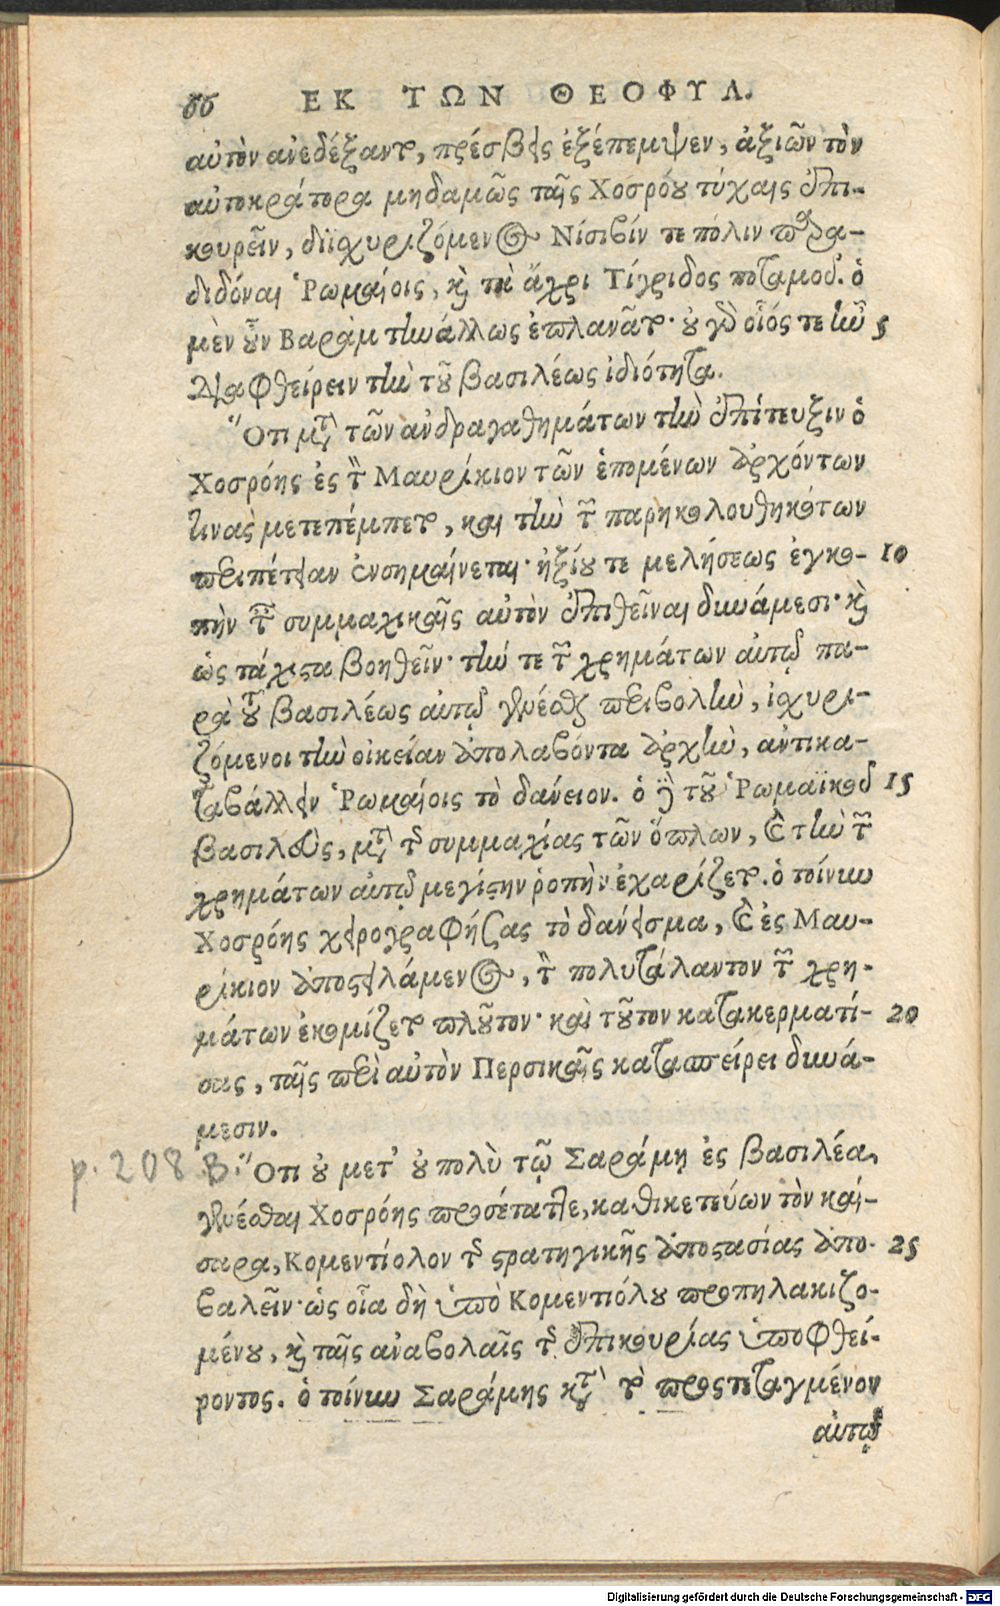 66 ΕΚ ΤΩΝ ΘΕΟΦΥΛ.
αὐτὸν ἀνεδέξαντο, πρέσβεις ἐξέπεμψεν, ἀξιῶν τὸν
αὐτοκράτορα μηδαμῶς ταῖς Χοσρόου τύχαις ἐπι-
κουρεῖν, διϊσχυριζόμενος Νίσιβίν τε πόλιν παρα-
διδόναι Ῥωμαίοις, καὶ τὰ ἄχρι Τίγριδος ποταμοῦ. ὁ
μὲν οὖν Βαρὰμ τὴν ἄλλως ἐπλανᾶτο· οὐ γὰρ οἷός τε ἦν 5
διαφθείρειν τὴν τοῦ βασιλέως ἰδιότητα.
Ὅτι μετὰ τῶν ἀνδραγαθημάτων τὴν ἐπίτευξιν ὁ
Χοσρόης ἐς τὸν Μαυρίκιον τῶν ἑπομένων ἀρχόντων
τινὰς μετεπέμπετο, καὶ τὴν τῶν παρηκολουθηκότων
περιπέτειαν ἐνσημαίνεται· ἠξίου τε μελήσεως ἐγκο- 10
πὴν τῶν συμμαχικαῖς αὐτὸν ἐπιθεῖναι δυνάμεσι· καὶ
ὡς τάχιστα βοηθεῖν· τήν τε τῶν χρημάτων αὐτῷ πα-
ρὰ τοῦ βασιλέως αὐτῷ γενέσθαι περιβολὴν, ἰσχυρι-
ζόμενοι τὴν οἰκείαν ἀπολαβόντα ἀρχὴν, ἀντικα-
ταβάλλειν Ῥωμαίοις τὸ δάνειον. ὁ δὲ τοῦ Ῥωμαϊκοῦ 15
βασιλεὺς, μετὰ τῆς συμμαχίας τῶν ὅπλων, καὶ τὴν τῶν
χρημάτων αὐτῷ μεγίστην ῥοπὴν ἐχαρίζετο. ὁ τοίνυν
Χοσρόης χειρογραφήσας τὸ δάνεισμα, καὶ ἐς Μαυ-
ρίκιον ἀποστειλάμενος, τὸν πολυτάλαντον τῶν χρη-
μάτων ἐκομίζετο πλοῦτον· καὶ τοῦτον κατακερματί- 20
σας, ταῖς περὶ αὐτὸν Περσικαῖς κατασπείρει δυνά-
μεσιν.
p. 208 B. Ὅτι οὐ μετ' οὐ πολὺ τῷ Σαράμῃ ἐς βασιλέα,
γενέσθαι Χοσρόης προσέταττε, καθικετεύων τὸν καί-
σαρα, Κομεντίολον τῆς στρατηγικῆς ἀποστασίας ἀπο- 25
βαλεῖν· ὡς οἷα δὴ ὑπὸ Κομεντιόλου προπηλακιζο-
μένου, καὶ ταῖς ἀναβολαῖς τῆς ἐπικουρίας ὑποφθεί-
ροντος. ὁ τοίνυν Σαράμης κατὰ τὸ προστεταγμένον
αὐτῷ
Digitalisierung gefördert durch die Deutsche Forschungsgemeinschaft - DFG